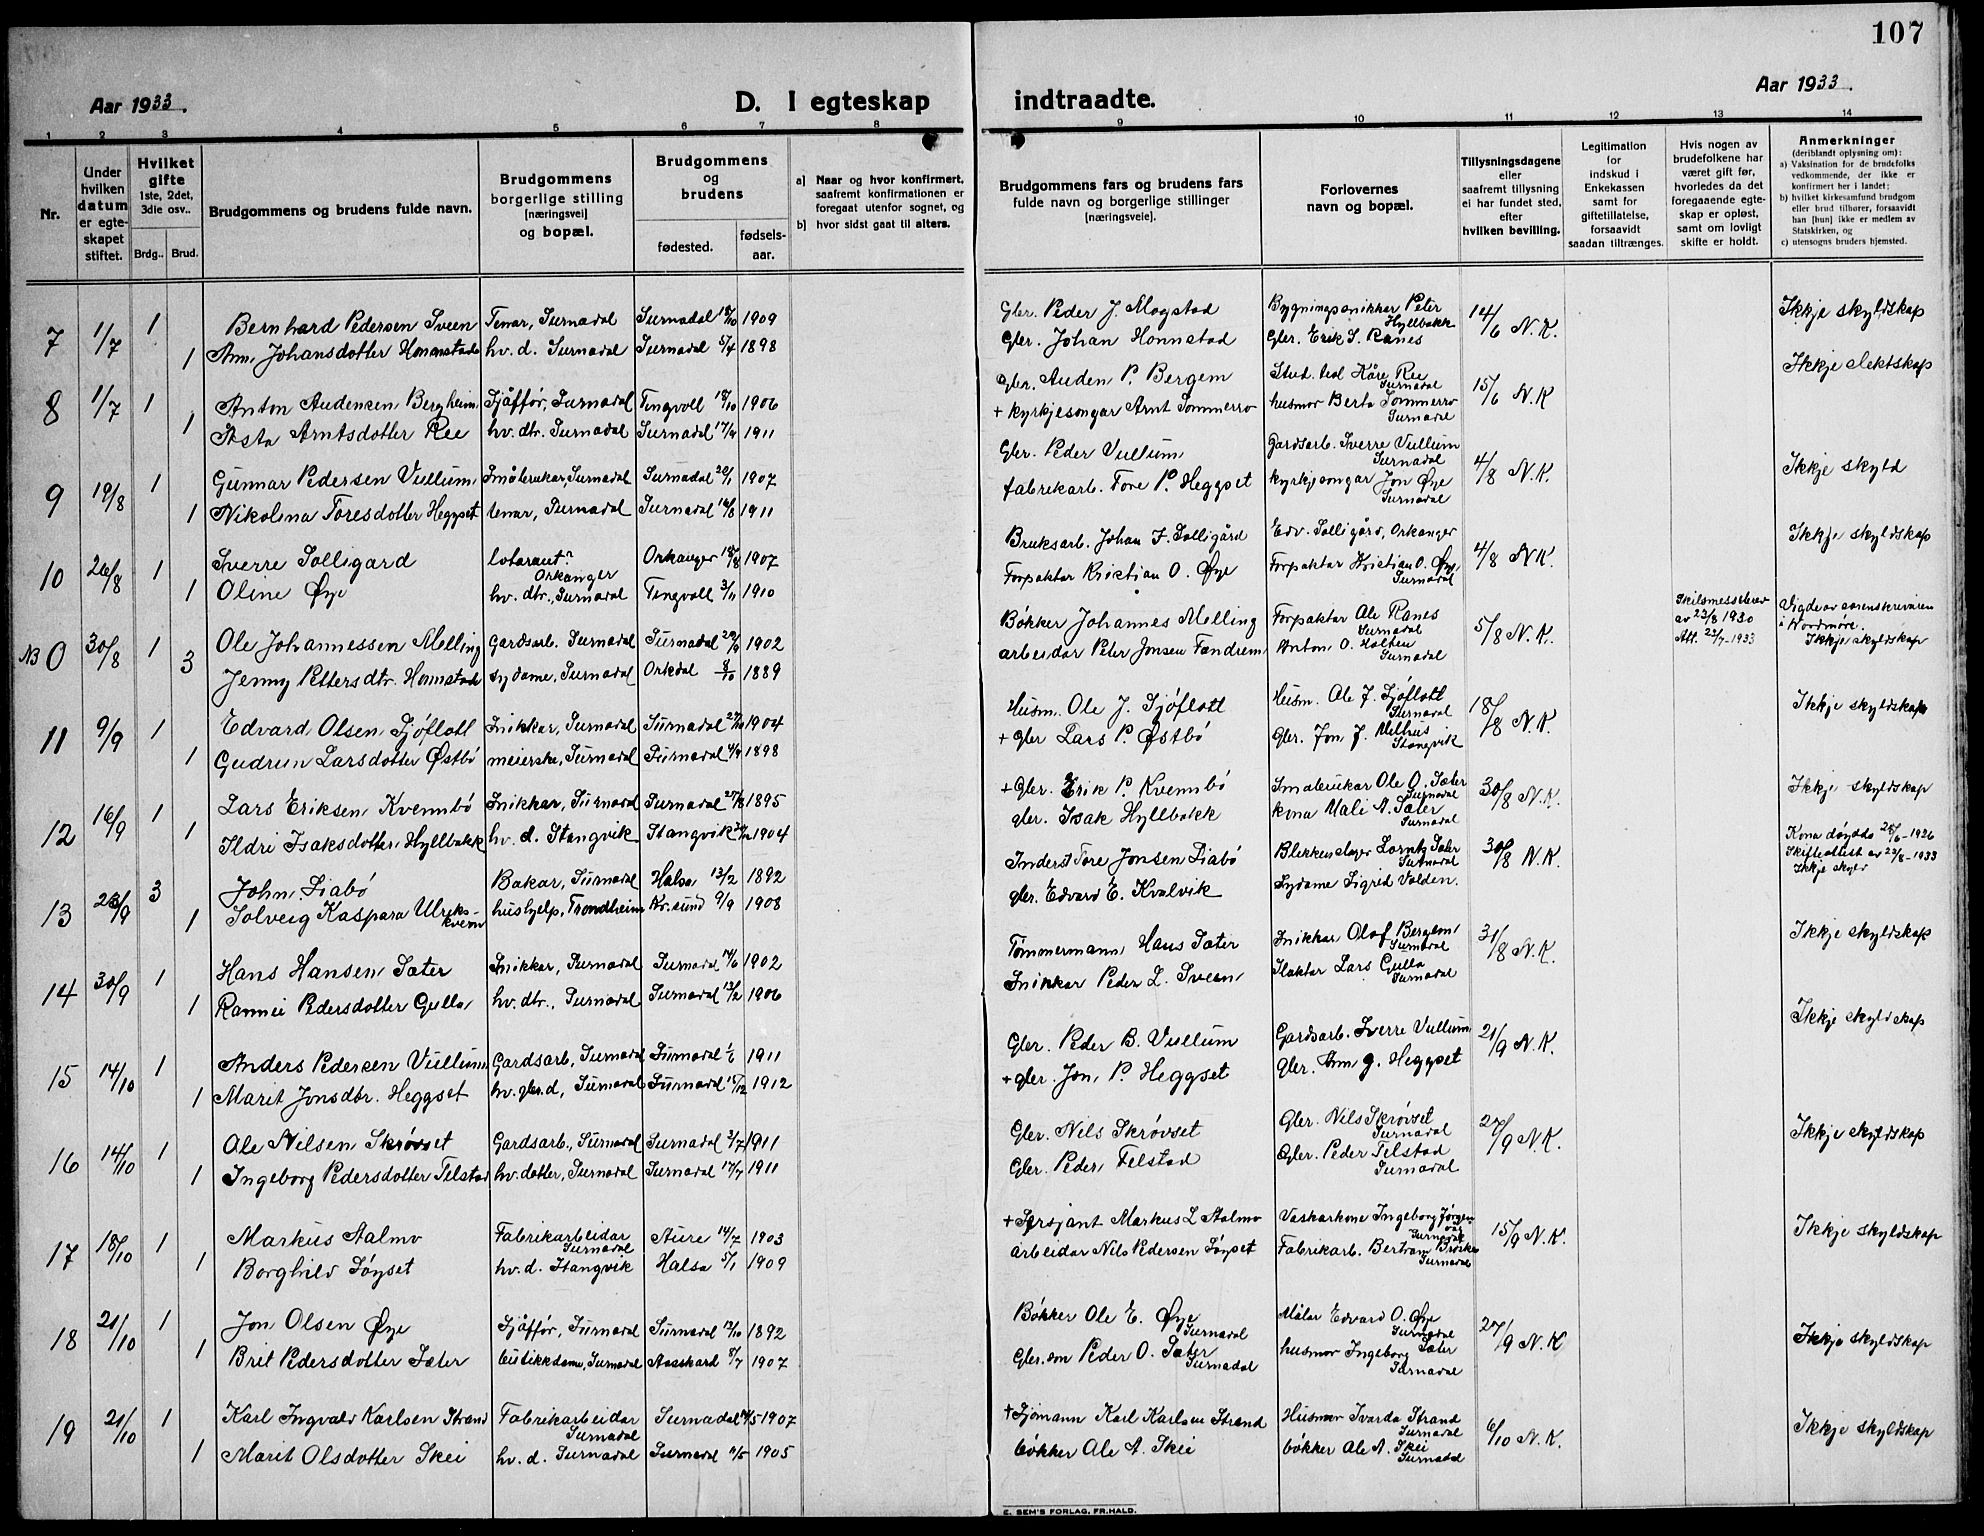 107
Aar 1933.
D. I egteskap
indtraadte.
Aar 1933.
1 2 3 4 5 6 7 8 9 10 11 12 13 14
Nr.
Under hvilken datum er egteskapet stiftet.
Hvilket gifte 1ste, 2det, 3die osv..
Brdg.. Brud.
Brudgommens og brudens fulde navn.
Brudgommens borgerlige stilling [næringsvei] og bopæl.
Brudgommens og brudens
fødested. fødsels-aar.
a] Naar og hvor konfirmert, saafremt konfirmationen er foregaat utenfor sognet, og
b] hvor sidst gaat til alters.
Brudgommens fars og brudens fars fulde navn og borgerlige stillinger [næringsveie].
Forlovernes navn og bopæl.
Tillysningsdagene eller saafremt tillysning ei har fundet sted, efter hvilken bevilling.
Legitimation for indskud i Enkekassen samt for giftetillatelse, forsaavidt saadan tiltrænges.
Hvis nogen av brudefolkene har været gift før, hvorledes da det foregaaende egteskap er opløst, samt om lovligt skifte er holdt.
Anmerkninger (deriblandt oplysning om):
a) Vaksination for de brudefolks vedkommende, der ikke er konfirmert her i landet;
b) hvilket kirkesamfund brudgom eller brud tilhører, forsaavidt han [hun] ikke er medlem av Statskirken, og
c) utensogns bruders hjemsted.
7 1/7 1 Bernhard Pedersen Sveen Tenar, Surnadal Surnadal 18/10 1909 Gbr. Peder J. Mogstad Bygningssnikkar Peter Hyllbakk 14/6 N.K. Ikkje skyldskap
1 Ann Johansdotter Honnstad hv. d. Surnadal Surnadal 5/4 1898 Gbr. Johan Honnstad Gbr. Erik S. Ranes
8 1/7 1 Anton Audensen Bergheim Sjåffør, Surnadal Tingvoll 18/10 1906 Gbr. Auden P. Bergem Stud. Kåre Ree Surnadal 15/6 N.K Ikkje slektskap
1 Åsta Arntsdotter Ree hv. dtr. Surnadal Surnadal 17/9 1911 + kyrkjesongar Arnt Sommerro husmor Berta Sommerro Surnadal
9 19/8 1 Gunnar Pedersen Vullum Småbrukar, Surnadal Surnadal 20/1 1907 Gbr. Peder Vullum Gardsarb. Sverre Vullum Surnadal 4/8 N.K. Ikkje skyld
1 Nikolina Toresdotter Heggset tenar, Surnadal Surnadal 14/8 1911 fabrikarb. Tore P. Heggset kyrkjesongar Jon Øye Surnadal
10 26/8 1 Sverre Solligard Orkanger Orkanger 18/8 1907 Bruksarb. Johan F. Solligård Edv. Solligård, Orkanger 4/8 N.K. Ikkje skyldskap
1 Oline Øye hv. dtr., Surnadal Tingvoll 3/11 1910 Forpaktar Kristian O. Øye Forpaktar Kristian O. Øye, Surnadal
NB 0 30/8 1 Ole Johannessen Melling Gardsarb. Surnadal Surnadal 1902 Bøkker Johannes Melling Forpaktar Ole Ranes Surnadal 5/8 N.K. Skilsmessebrev av 23/8 1930 Att. 22/7-1933 Vigde av sorenskrivaren i Nordmøre. Ikkje skyldskap
3 Jenny Pettersdtr. Honnstad sydame, Surnadal Orkdal 8/10 1889 arbeidar Peter Jonsen Fandrem Anton O. Holten Surnadal
11 9/9 1 Edvard Olsen Sjøflott Snikkar, Surnadal Surnadal 1904 Husm. Ole J. Sjøflott Husm. Ole J. Sjøflott Surnadal 18/8 N.K. Ikkje skyldskap
1 Gudrun Larsdotter Østbø meierske, Surnadal Surnadal 1898 + gbr Lars P. Østbø Gbr. Jon J. Melhus Stangvik
12 16/9 1 Lars Eriksen Kvennbø Snikkar, Surnadal Surnadal 27/8 1895 + Gbr. Erik P. Kvennbø Småbrukar Ole O. Sæter Surnadal 30/8 N.K. Ikkje skyldskap
1 Ildri Isaksdotter Hyllbakk hv. d. Stangvik Stangvik 1904 gbr. Isak Hyllbakk kona Mali A. Sæter Surnadal
13 23/9 3 John Siabø Bakar, Surnadal Halsa 13/2 1892 Inderst Tore Jonsen Siabø Blikkenslager Lornts Sæter Surnadal 30/8 N.K. Kona døydde 1926 Skifteattest av 22/8-1933 Ikkje skyld
1 Solveig Kaspara Ulriks-kvenn hushjelp, Trondheim Kr.sund 9/9 1908 gbr. Edvard E. Kvalvik Sydame Sigrid Volden.
14 30/9 1 Hans Hansen Sæter Snikkar, Surnadal Surnadal 1902 Tømmermann Hans Sæter Snikkar Olaf Bergem Surnadal 31/8 N.K. Ikkje skyldskap
1 Rannei Pedersdotter Gulla hv. dtr., Surnadal Surnadal 13/2 1906 Snikkar Peder L. Sveen Slaktar Lars Gulla Surnadal
15 14/10 1 Anders Pedersen Vullum Gardsarb. Surnadal Surnadal 1/6 1911 Gbr. Peder B. Vullum Gardsarb. Sverre Vullum 21/9 N.K. Ikkje skyldskap
1 Marit Jonsdtr. Heggset hv. gbr.d, Surnadal Surnadal 15/12 1912 + gbr. Jon P. Heggset Gbr. Ann G. Heggset
16 14/10 1 Ole Nilsen Skrøvset Gardsarb., Surnadal Surnadal 3/7 1911 Gbr. Nils Skrøvset Gbr. Nils Skrøvset Surnadal 27/9 N.K. Ikkje skyldskap
1 Ingeborg Pedersdotter Telstad hv. dotter, Surnadal Surnadal 17/7 1911 Gbr. Peder Telstad Gbr. Peder Telstad Surnadal
17 18/10 1 Markus Aalmo Fabrikarbeidar Surnadal Aure 14/7 1903 + Sersjant Markus L Aalmo Vaskarkone Ingeborg Jørgenvåg Surnadal 15/9 N.K. Ikkje skyldskap
1 Borghild Søyset hv. d. Stangvik Halsa 5/1 1909 arbeidar Nils Pedersen Søyset Fabrikarb. Bertram Brøske Surnadal
18 21/10 1 Jon Olsen Øye Sjåffør, Surnadal Surnadal 12/10 1892 Bøkker Ole E. Øye Surnadal Målar Edvard O. Øye Surnadal 27/9 N.K Ikkje skyldskap
1 Brit Pedersdotter Sæter butikkdame, Surnadal Aasskard 8/7 1907 Gbr.sm Peder O. Sæter Surnadal husmor Ingeborg Sæter Surnadal
19 21/10 1 Karl Ingvald Karlsen Strand Fabrikarbeidar Surnadal Surnadal 1907 + Sjømann Karl Karlsen Strand Husmor Ivarda Strand Surnadal 6/10 N.K. Ikkje skyldskap
1 Marit Olsdotter Skei hv. d. Surnadal Surnadal 1905 bøkker Ole A. Skei bøkker Ole A. Skei Surnadal
E. SEM'S FORLAG, FR.HALD.